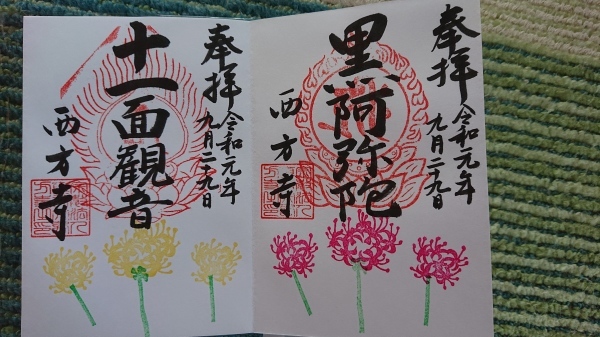 奉拝
令和元年
九月二十九日
黒阿弥陀
西方寺
奉拝
令和元年
九月二十九日
十一面観音
西方寺